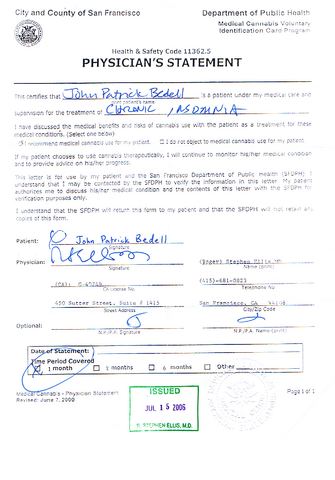 City and County of San Francisco Department of Public Health
Medical Cannabis Voluntary
Identification Card Program
Health & Safety Code 11362.5
PHYSICIAN'S STATEMENT
This certifies that John Patrick Bedell is a patient under my medical care and
print patient's name
supervision for the treatment of CHRONIC INSOMNIA
I have discussed the medical benefits and risks of cannabis use with the patient as a treatment for these
medical conditions. (Select one below)
I recommend medical cannabis use for my patient. I do not object to medical cannabis use for my patient.
If my patient chooses to use cannabis therapeutically, I will continue to monitor his/her medical condition
and to provide advice on his/her progress.
This letter is for use by my patient and the San Francisco Department of Public Health (SFDPH). I
understand that I may be contacted by the SFDPH to verify the information in this letter. My patient
authorizes me to discuss his/her medical condition and the contents of this letter with the SFDPH for
verification purposes only.
I understand that the SFDPH will return this form to my patient and that the SFDPH will not retain any
copies of this form.
Patient: John Patrick Bedell
Signature
Physician: Stephen Ellis
Signature Name (print)
(CA) (415)-681-0823
CA License No. Telephone No
450 Sutter Street, Suite # 1415 San Francisco, CA
Street Address City/Zip Code
Optional:
N.P./P.A. Signature N.P./P.A. Name (print)
Date of Statement:
Time Period Covered
1 month 3 months 6 months Other
Medical Cannabis - Physician Statement Page 1 of 1
Revised: June 7, 2000
ISSUED
JUL 15 2006
STEPHEN ELLIS, M.D.